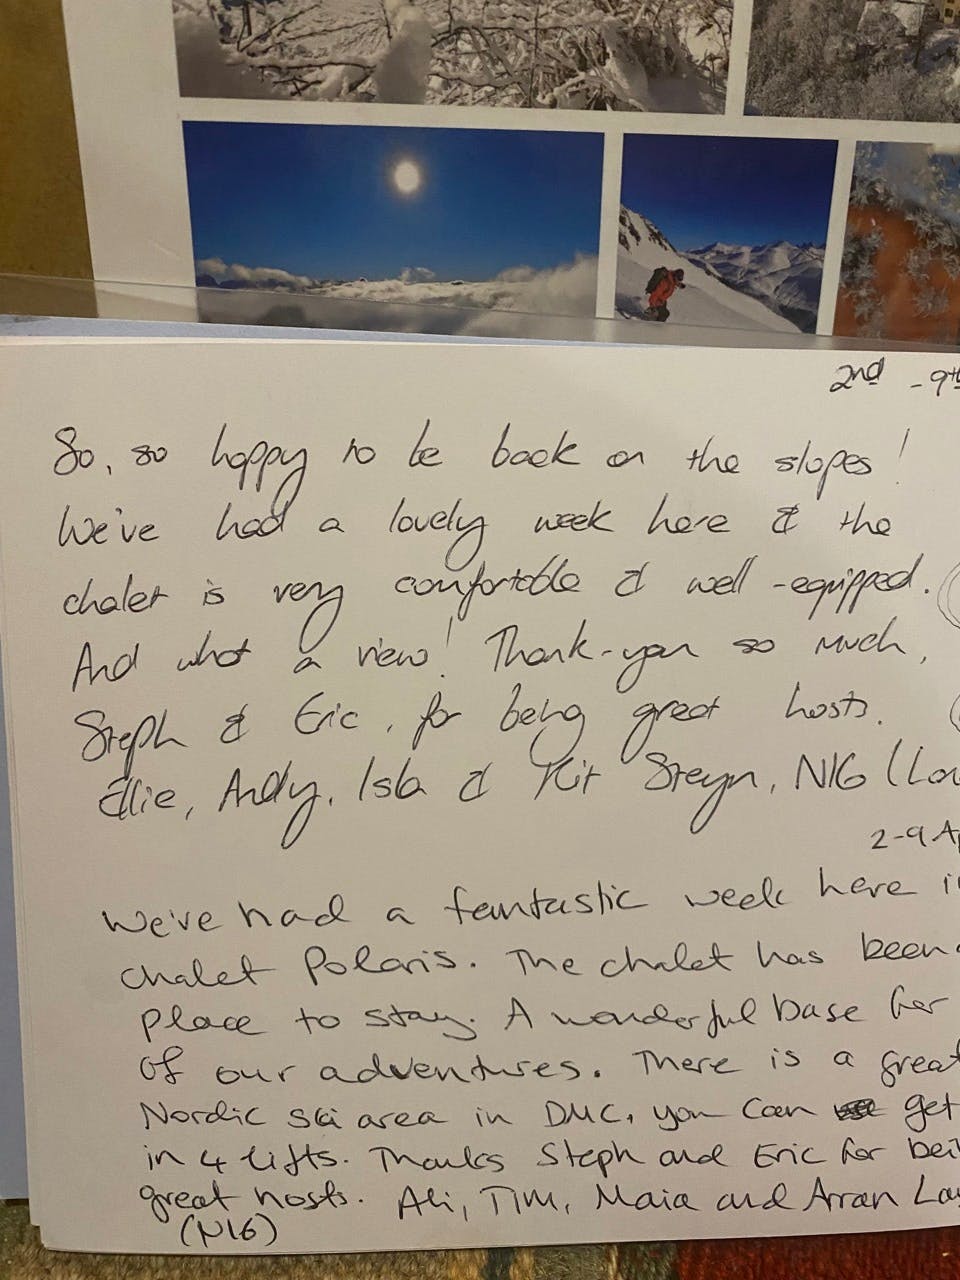 2nd - 9th
So, so happy to be back on the slopes!
We've had a lovely week here & the
chalet is very comfortable & well-equipped.
And what a view! Thank-you so much,
Steph & Eric, for being great hosts.
Ellie, Andy, Isla & Kit Steyn, N16 (Lon
2-9 Ap
We've had a fantastic week here in
chalet Polaris. The chalet has been
place to stay. A wonderful base for
of our adventures. There is a great
Nordic ski area in DMC, you can get
in 4 lifts. Thanks Steph and Eric for bei
great hosts. Ali, Tim, Maia and Arran
(N16)